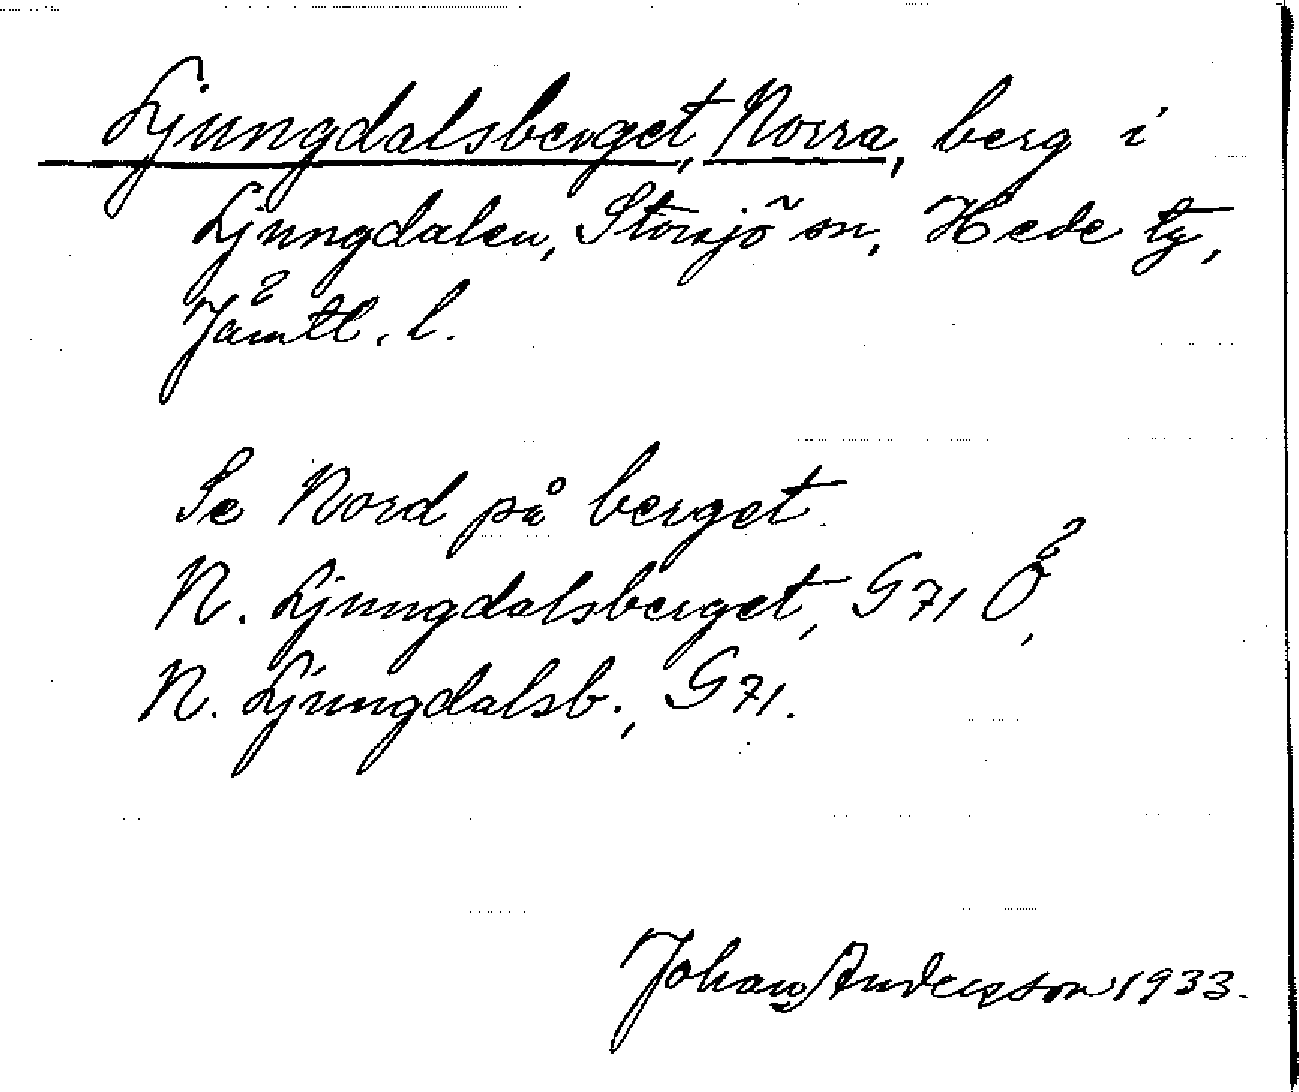 Ljungdalsberget, Norra, berg i
Ljungdalen, Storsjö sn, Hede tg,
Jämtl. l.
Se Nord på berget.
N. Ljungdalsberget, G 71 Ö,
N. Ljungdalsb., G 71.
Johan Anderson 1933.